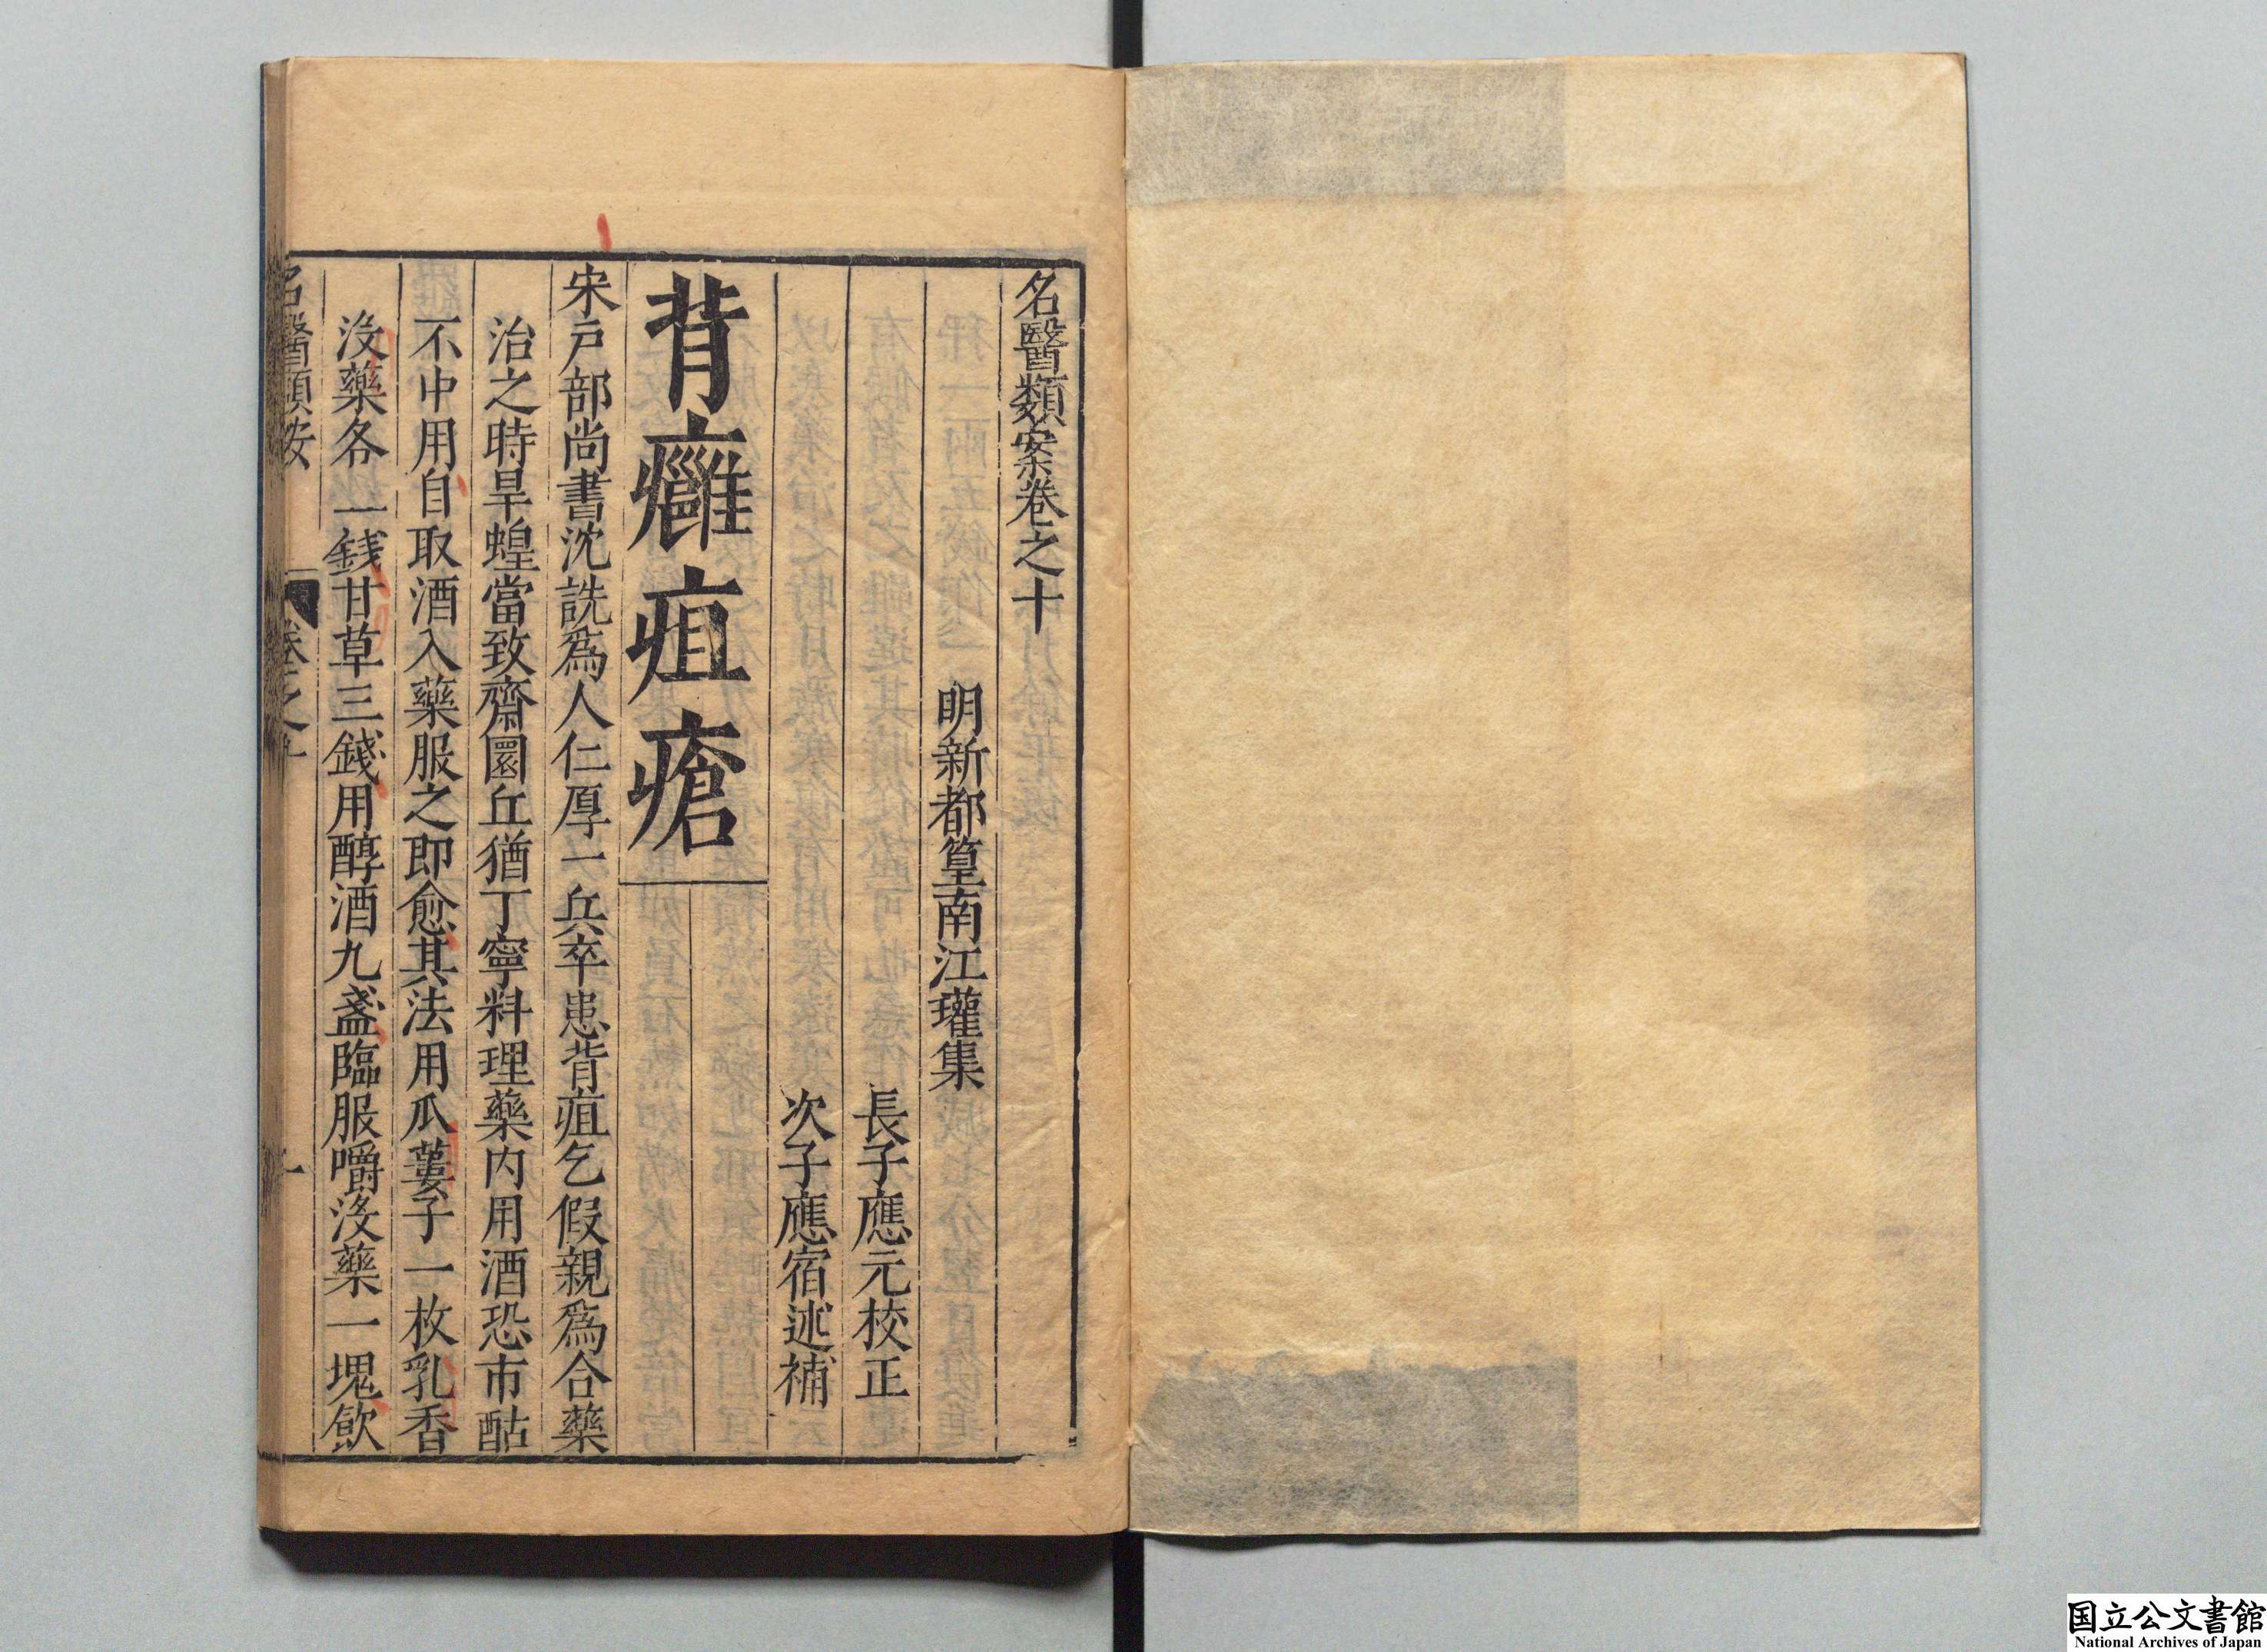 名醫類案卷之十
明新都篁南江瓘集
長子應元校正
次子應宿述補
背癰疽瘡
宋戶部尚書沈詵爲人仁厚一兵卒患背疽乞假親爲合藥
治之時旱蝗當致齋圜丘猶丁寧料理藥内用酒恐市酤
不中用自取酒入藥服之即愈其法用瓜蔞子一枚乳香
没藥各一銭甘草三錢用醇酒九盞臨服嚼没藥一塊飲
名醫類案
卷之十
一
国立公文書館
National Archives of Japan